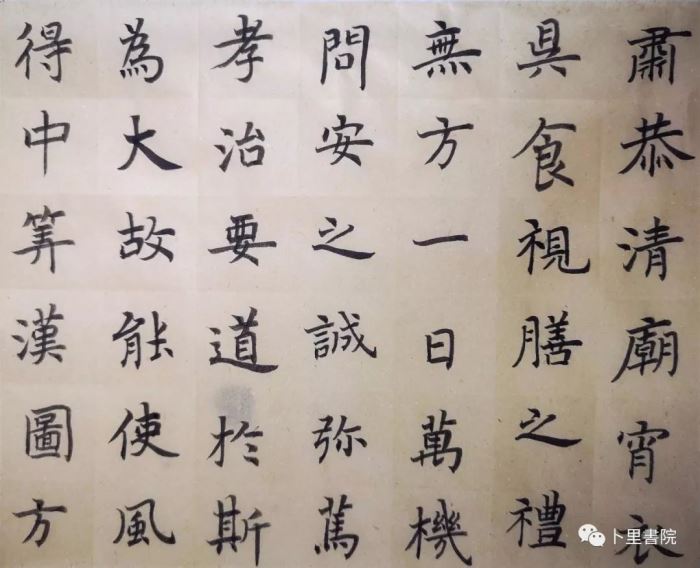 肅恭清廟宵衣
具食視膳之禮
無方一日萬機
問安之誠弥篤
孝治要道於斯
為大故能使風
得中筭漢圖方
卜里書院